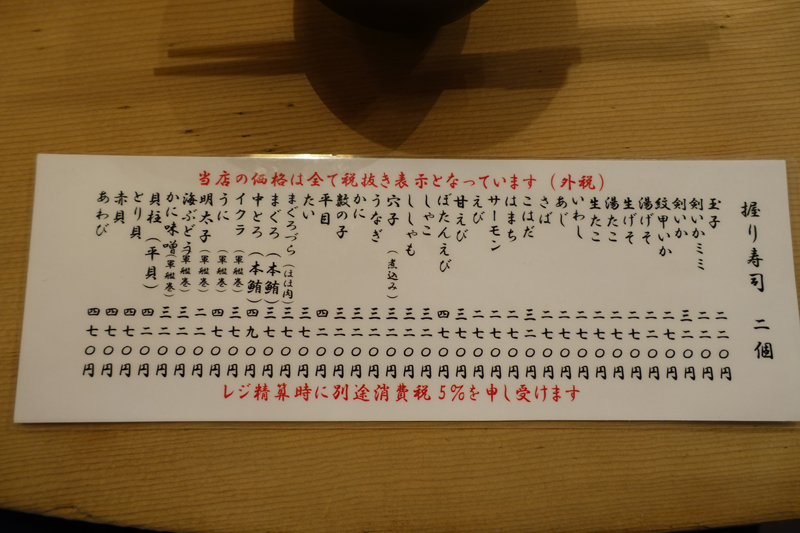 当店の価格は全て税抜き表示となっています（外税）
握り寿司　二個
玉子 二二〇円
剣いかミミ 二二〇円
剣いか 三二〇円
紋甲いか 二七〇円
湯げそ 二二〇円
生げそ 二二〇円
湯たこ 二七〇円
生たこ 二七〇円
いわし 二七〇円
あじ 二七〇円
さば 二七〇円
こはだ 三二〇円
はまち 二七〇円
サーモン 二七〇円
えび 二七〇円
甘えび 三七〇円
ぼたんえび 四七〇円
しゃこ 三二〇円
ししゃも 三二〇円
穴子（煮込み） 三二〇円
うなぎ 三二〇円
かに 三二〇円
数の子 三二〇円
平目 四二〇円
たい 三七〇円
まぐろづら（ほほ肉） 三七〇円
まぐろ（本鮪） 三七〇円
中とろ（本鮪） 四九〇円
イクラ（軍艦巻） 三七〇円
うに（軍艦巻） 四七〇円
明太子（軍艦巻） 二二〇円
海ぶどう（軍艦巻） 三二〇円
かに味噌（軍艦巻） 三二〇円
貝柱（平貝） 四二〇円
とり貝 四七〇円
赤貝 四七〇円
あわび 四七〇円
レジ精算時に別途消費税5%を申し受けます